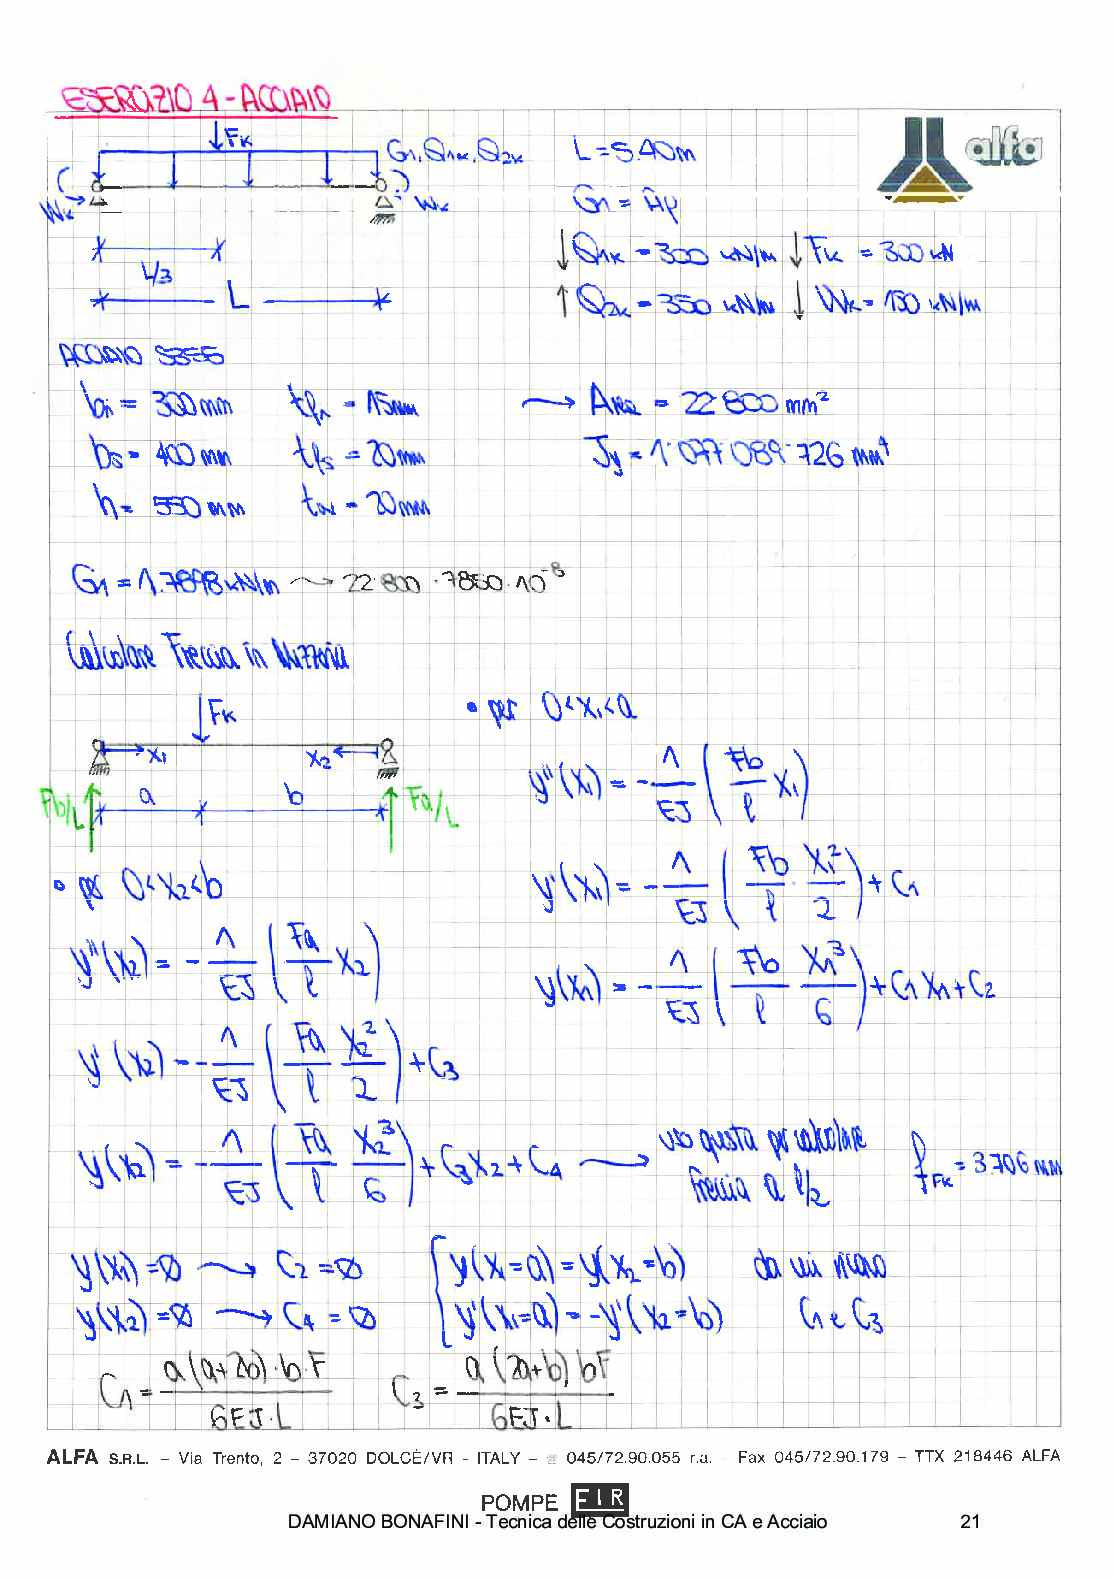 ESERCIZIO 4 - ACCIAIO
alfa
Fk
G1, Q1k, Q2k
L = 5.40 m
Wk
Wk
G1 = Aρ
L/3
↓ Q1k = 300 kN/m ↓ Fk = 300 kN
L
↑ Q2k = 350 kN/m ↓ Wk = 150 kN/m
ACCIAIO S355
bi = 300 mm tfi = 15 mm → Area = 22 800 mm²
bs = 400 mm tfs = 20 mm Jy = 1'077'089'726 mm⁴
h = 550 mm tw = 20 mm
G1 = 1.7898 kN/m → 22 800 · 7850 · 10⁻⁸
Calcolare Freccia in Mezzeria
Fk
x1 x2
a b
Fb/L Fa/L
• per 0<x1<a
y''(x1) = - 1/EJ (Fb/l x1)
y'(x1) = - 1/EJ (Fb/l · x1²/2) + C1
y(x1) = - 1/EJ (Fb/l x1³/6) + C1 x1 + C2
• per 0<x2<b
y''(x2) = - 1/EJ (Fa/l x2)
y'(x2) = - 1/EJ (Fa/l x2²/2) + C3
y(x2) = - 1/EJ (Fa/l x2³/6) + C3x2 + C4 → uso questa per calcolare freccia a l/2 fFk = 3.706 mm
y(x1) = Ø → C2 = Ø { y(x1=a) = y(x2=b) da cui ricavo
y(x2) = Ø → C4 = Ø y'(x1=a) = -y'(x2=b) C1 e C3
C1 = a(a+2b)·b·F / 6EJ·L C3 = a(2a+b) bF / 6EJ·L
ALFA S.R.L. – Via Trento, 2 – 37020 DOLCÈ/VR - ITALY – ☏ 045/72.90.055 r.a. - Fax 045/72.90.179 – TTX 218446 ALFA
POMPE FIR
DAMIANO BONAFINI - Tecnica delle Costruzioni in CA e Acciaio 21